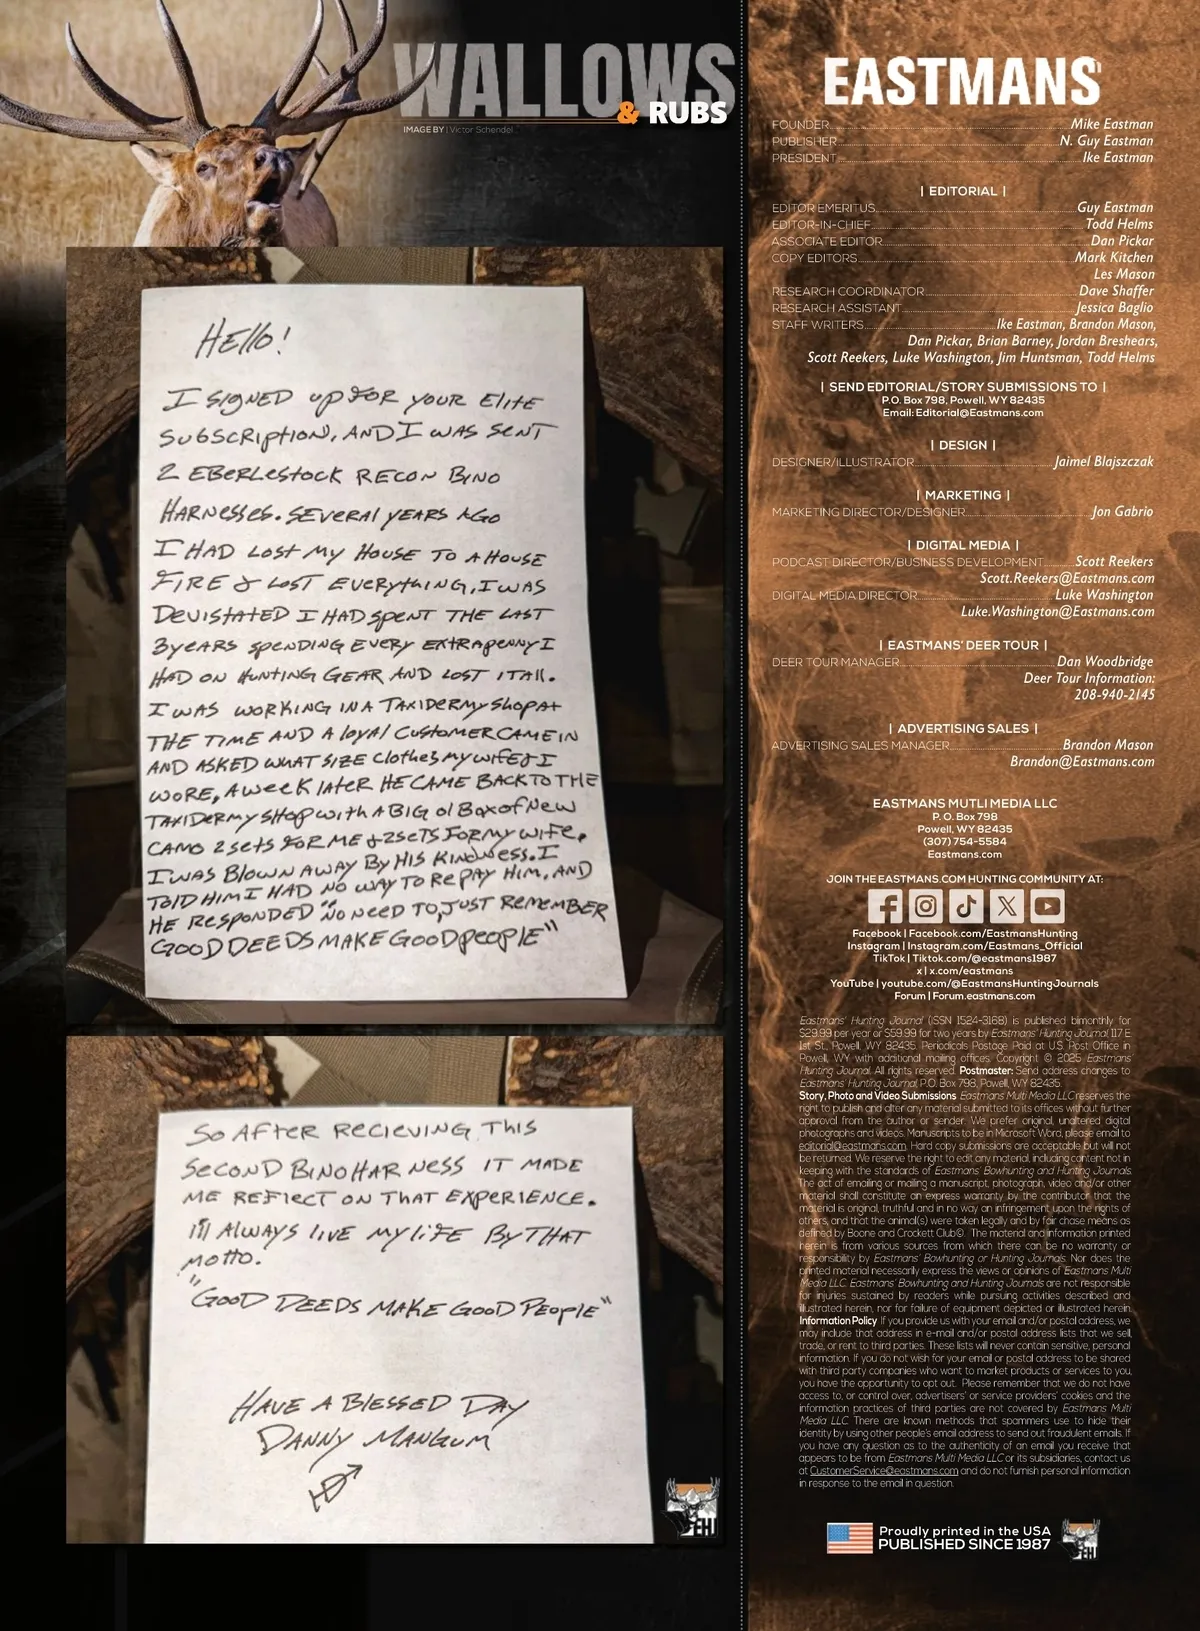 WALLOWS
& RUBS
IMAGE BY | Victor Schendel
HELLO!
I SIGNED UP FOR YOUR ELITE
SUBSCRIPTION, AND I WAS SENT
2 EBERLESTOCK RECON BINO
HARNESSES. SEVERAL YEARS AGO
I HAD LOST MY HOUSE TO A HOUSE
FIRE & LOST EVERYTHING, I WAS
DEVISTATED I HAD SPENT THE LAST
3 YEARS SPENDING EVERY EXTRA PENNY I
HAD ON HUNTING GEAR AND LOST IT ALL.
I WAS WORKING IN A TAXIDERMY SHOP AT
THE TIME AND A LOYAL CUSTOMER CAME IN
AND ASKED WHAT SIZE CLOTHES MY WIFE & I
WORE, A WEEK LATER HE CAME BACK TO THE
TAXIDERMY SHOP WITH A BIG OL BOX OF NEW
CAMO 2 SETS FOR ME & 2 SETS FOR MY WIFE.
I WAS BLOWN AWAY BY HIS KINDNESS. I
TOLD HIM I HAD NO WAY TO REPAY HIM, AND
HE RESPONDED "NO NEED TO, JUST REMEMBER
GOOD DEEDS MAKE GOOD PEOPLE"
SO AFTER RECIEVING THIS
SECOND BINO HARNESS IT MADE
ME REFLECT ON THAT EXPERIENCE.
I'll ALWAYS LIVE MY LIFE BY THAT
MOTTO.
"GOOD DEEDS MAKE GOOD PEOPLE"
HAVE A BLESSED DAY
DANNY MANGUM
EHJ
EASTMANS'
FOUNDER Mike Eastman
PUBLISHER N. Guy Eastman
PRESIDENT Ike Eastman
| EDITORIAL |
EDITOR EMERITUS Guy Eastman
EDITOR-IN-CHIEF Todd Helms
ASSOCIATE EDITOR Dan Pickar
COPY EDITORS Mark Kitchen
Les Mason
RESEARCH COORDINATOR Dave Shaffer
RESEARCH ASSISTANT Jessica Baglio
STAFF WRITERS Ike Eastman, Brandon Mason,
Dan Pickar, Brian Barney, Jordan Breshears,
Scott Reekers, Luke Washington, Jim Huntsman, Todd Helms
| SEND EDITORIAL/STORY SUBMISSIONS TO |
P.O. Box 798, Powell, WY 82435
Email: Editorial@Eastmans.com
| DESIGN |
DESIGNER/ILLUSTRATOR Jaimel Blajszczak
| MARKETING |
MARKETING DIRECTOR/DESIGNER Jon Gabrio
| DIGITAL MEDIA |
PODCAST DIRECTOR/BUSINESS DEVELOPMENT Scott Reekers
Scott.Reekers@Eastmans.com
DIGITAL MEDIA DIRECTOR Luke Washington
Luke.Washington@Eastmans.com
| EASTMANS' DEER TOUR |
DEER TOUR MANAGER Dan Woodbridge
Deer Tour Information:
208-940-2145
| ADVERTISING SALES |
ADVERTISING SALES MANAGER Brandon Mason
Brandon@Eastmans.com
EASTMANS MUTLI MEDIA LLC
P. O. Box 798
Powell, WY 82435
(307) 754-5584
Eastmans.com
JOIN THE EASTMANS.COM HUNTING COMMUNITY AT:
Facebook | Facebook.com/EastmansHunting
Instagram | Instagram.com/Eastmans_Official
TikTok | Tiktok.com/@eastmans1987
x | x.com/eastmans
YouTube | youtube.com/@EastmansHuntingJournals
Forum | Forum.eastmans.com
Eastmans' Hunting Journal (ISSN 1524-3168) is published bimonthly for
$29.99 per year or $59.99 for two years by Eastmans' Hunting Journal, 117 E
1st St., Powell, WY 82435. Periodicals Postage Paid at U.S. Post Office in
Powell, WY with additional mailing offices. Copyright © 2025 Eastmans
Hunting Journal. All rights reserved. Postmaster: Send address changes to
Eastmans' Hunting Journal, P.O. Box 798, Powell, WY 82435.
Story, Photo and Video Submissions Eastmans Multi Media LLC reserves the
right to publish and alter any material submitted to its offices without further
approval from the author or sender. We prefer original, unaltered digital
photographs and videos. Manuscripts to be in Microsoft Word, please email to
editorial@eastmans.com. Hard copy submissions are acceptable but will not
be returned. We reserve the right to edit any material, including content not in
keeping with the standards of Eastmans' Bowhunting and Hunting Journals.
The act of emailing or mailing a manuscript, photograph, video and/or other
material shall constitute an express warranty by the contributor that the
material is original, truthful and in no way an infringement upon the rights of
others, and that the animal(s) were taken legally and by fair chase means as
defined by Boone and Crockett Club©. The material and information printed
herein is from various sources from which there can be no warranty or
responsibility by Eastmans' Bowhunting or Hunting Journals. Nor does the
printed material necessarily express the views or opinions of Eastmans Multi
Media LLC. Eastmans' Bowhunting and Hunting Journals are not responsible
for injuries sustained by readers while pursuing activities described and
illustrated herein, nor for failure of equipment depicted or illustrated herein.
Information Policy If you provide us with your email and/or postal address, we
may include that address in e-mail and/or postal address lists that we sell,
trade, or rent to third parties. These lists will never contain sensitive, personal
information. If you do not wish for your email or postal address to be shared
with third party companies who want to market products or services to you,
you have the opportunity to opt out. Please remember that we do not have
access to, or control over, advertisers' or service providers' cookies and the
information practices of third parties are not covered by Eastmans Multi
Media LLC. There are known methods that spammers use to hide their
identity by using other people's email address to send out fraudulent emails. If
you have any question as to the authenticity of an email you receive that
appears to be from Eastmans Multi Media LLC or its subsidiaries, contact us
at CustomerService@eastmans.com and do not furnish personal information
in response to the email in question.
Proudly printed in the USA
PUBLISHED SINCE 1987
EHJ